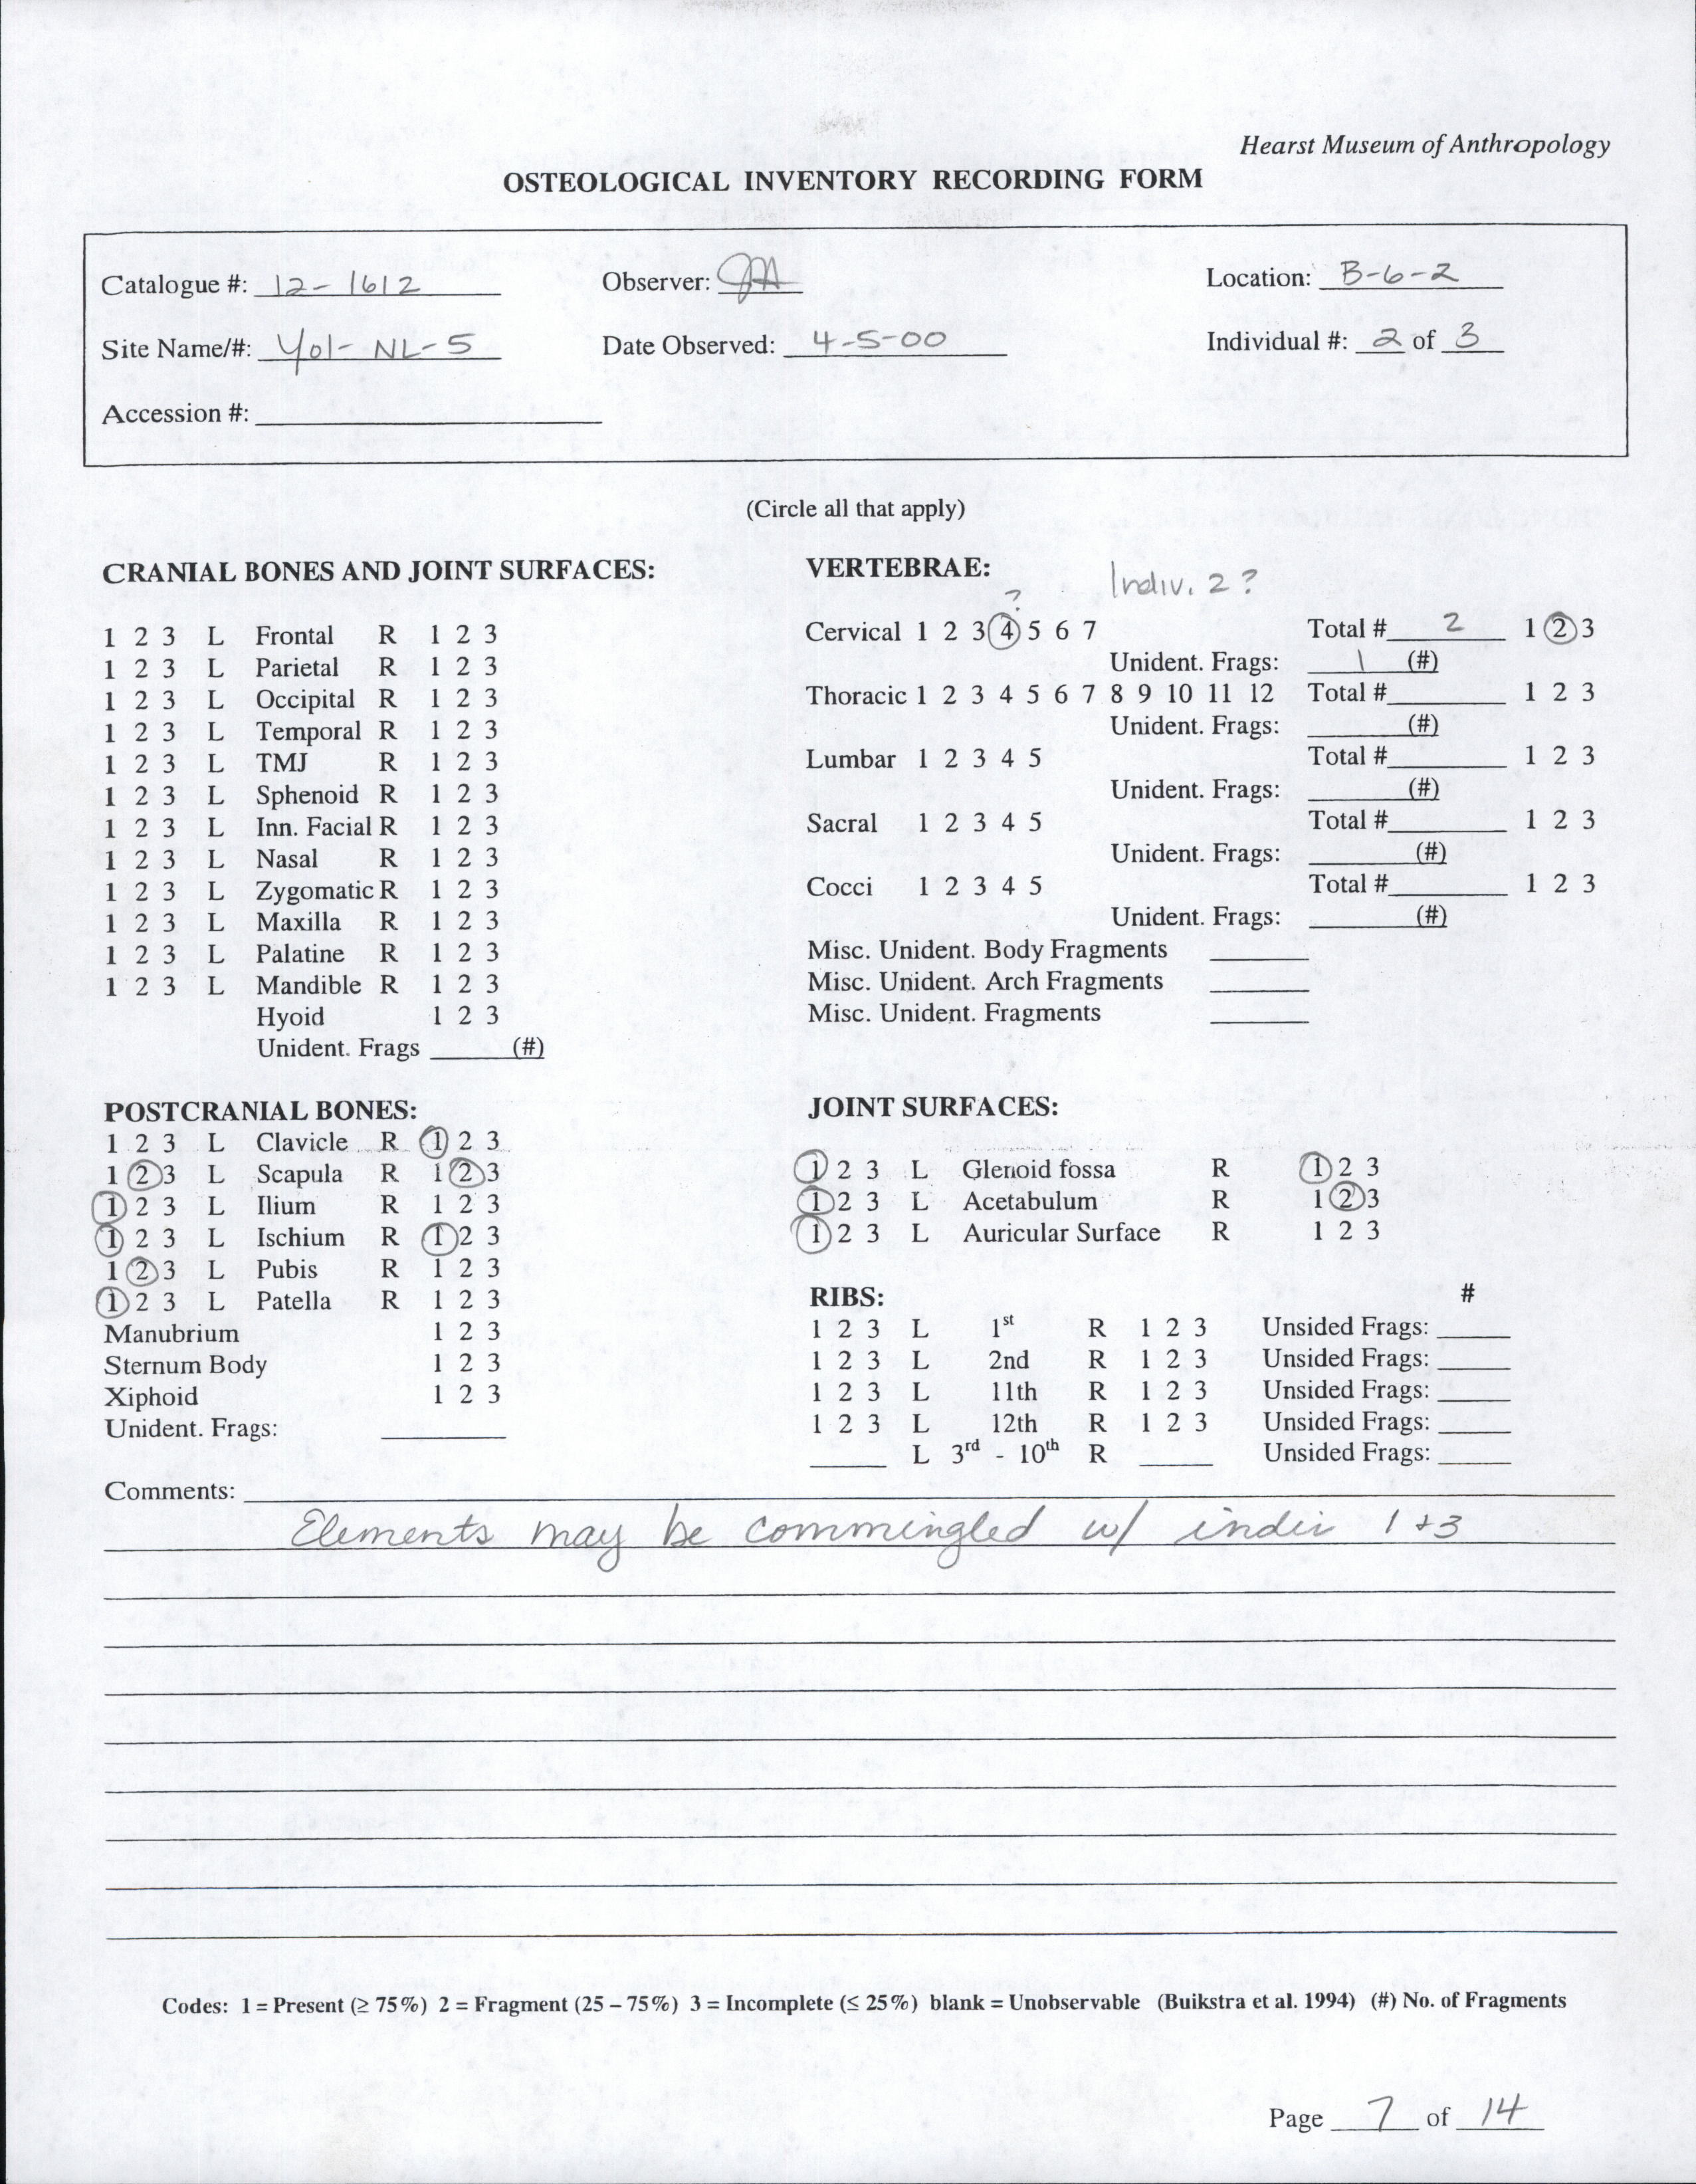 Hearst Museum of Anthropology
OSTEOLOGICAL INVENTORY RECORDING FORM
Catalogue #: 12-1612 Observer: JA Location: B-6-2
Site Name/#: Yol-NL-5 Date Observed: 4-5-00 Individual #: 2 of 3
Accession #:
(Circle all that apply)
CRANIAL BONES AND JOINT SURFACES:
1 2 3 L Frontal R 1 2 3
1 2 3 L Parietal R 1 2 3
1 2 3 L Occipital R 1 2 3
1 2 3 L Temporal R 1 2 3
1 2 3 L TMJ R 1 2 3
1 2 3 L Sphenoid R 1 2 3
1 2 3 L Inn. Facial R 1 2 3
1 2 3 L Nasal R 1 2 3
1 2 3 L Zygomatic R 1 2 3
1 2 3 L Maxilla R 1 2 3
1 2 3 L Palatine R 1 2 3
1 2 3 L Mandible R 1 2 3
Hyoid 1 2 3
Unident. Frags (#)
VERTEBRAE: Indiv. 2 ?
?
Cervical 1 2 3 4 5 6 7 Total # 2 1 2 3
Unident. Frags: 1 (#)
Thoracic 1 2 3 4 5 6 7 8 9 10 11 12 Total # 1 2 3
Unident. Frags: (#)
Lumbar 1 2 3 4 5 Total # 1 2 3
Unident. Frags: (#)
Sacral 1 2 3 4 5 Total # 1 2 3
Unident. Frags: (#)
Cocci 1 2 3 4 5 Total # 1 2 3
Unident. Frags: (#)
Misc. Unident. Body Fragments
Misc. Unident. Arch Fragments
Misc. Unident. Fragments
POSTCRANIAL BONES:
1 2 3 L Clavicle R 1 2 3
1 2 3 L Scapula R 1 2 3
1 2 3 L Ilium R 1 2 3
1 2 3 L Ischium R 1 2 3
1 2 3 L Pubis R 1 2 3
1 2 3 L Patella R 1 2 3
Manubrium 1 2 3
Sternum Body 1 2 3
Xiphoid 1 2 3
Unident. Frags:
JOINT SURFACES:
1 2 3 L Glenoid fossa R 1 2 3
1 2 3 L Acetabulum R 1 2 3
1 2 3 L Auricular Surface R 1 2 3
RIBS: #
1 2 3 L 1st R 1 2 3 Unsided Frags:
1 2 3 L 2nd R 1 2 3 Unsided Frags:
1 2 3 L 11th R 1 2 3 Unsided Frags:
1 2 3 L 12th R 1 2 3 Unsided Frags:
L 3rd - 10th R Unsided Frags:
Comments:
Elements may be commingled w/ indiv 1 + 3
Codes: 1 = Present (≥ 75%) 2 = Fragment (25 – 75%) 3 = Incomplete (≤ 25%) blank = Unobservable (Buikstra et al. 1994) (#) No. of Fragments
Page 7 of 14